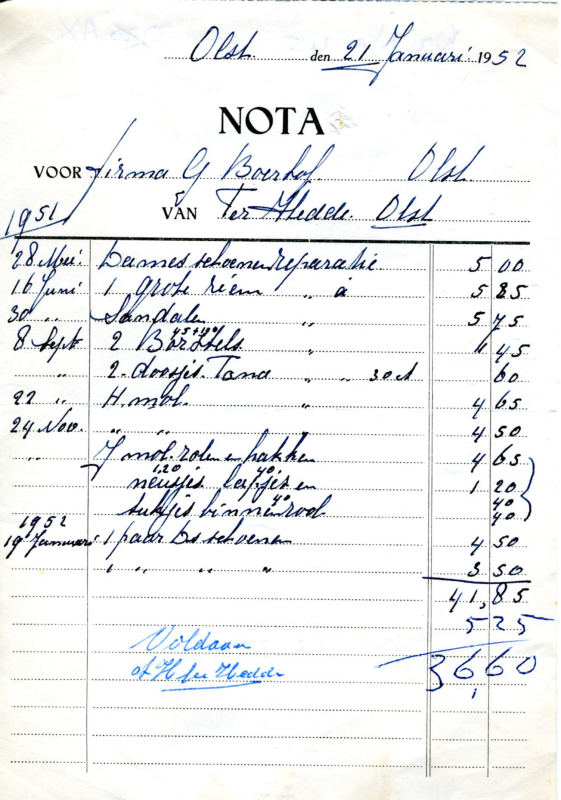 Olst den 21 Januari 1952
NOTA
VOOR firma G Boerhof Olst
1951 VAN Ter Hedde. Olst
28 Mei. Dames schoenreparatie 5 00
16 Juni 1 grote riem " á 5 85
30 " Sandalen " 5 75
45+
8 Sept 2 Borstels " " 45
" 2 doosjes Tana " " 30 ct 60
22 " H. mol. " 4 65
24 Nov. " " 4 50
" J mol. zolen en hakken 4 65
1,20 40
neusjes lapjes en 1 20
40
40
stukjes binnenzool 40
1952
19 Januari 1 paar Ds schoenen 4 50
" " " " 3 50
41,85
5 25
Voldaan 36,60
H ter Hedde